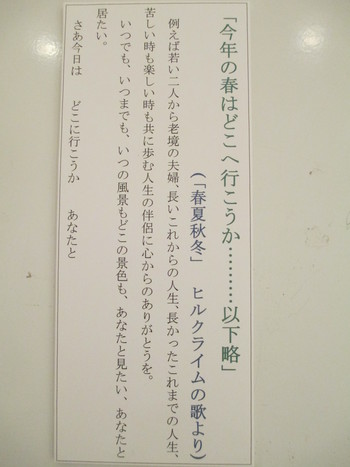 「今年の春はどこへ行こうか………以下略」
(「春夏秋冬」　ヒルクライムの歌より)
例えば若い二人から老境の夫婦、長いこれからの人生、長かったこれまでの人生、
苦しい時も楽しい時も共に歩む人生の伴侶に心からのありがとうを。
いつでも、いつまでも、いつの風景もどこの景色も、あなたと見たい、あなたと
居たい。
さあ今日は　どこに行こうか　あなたと